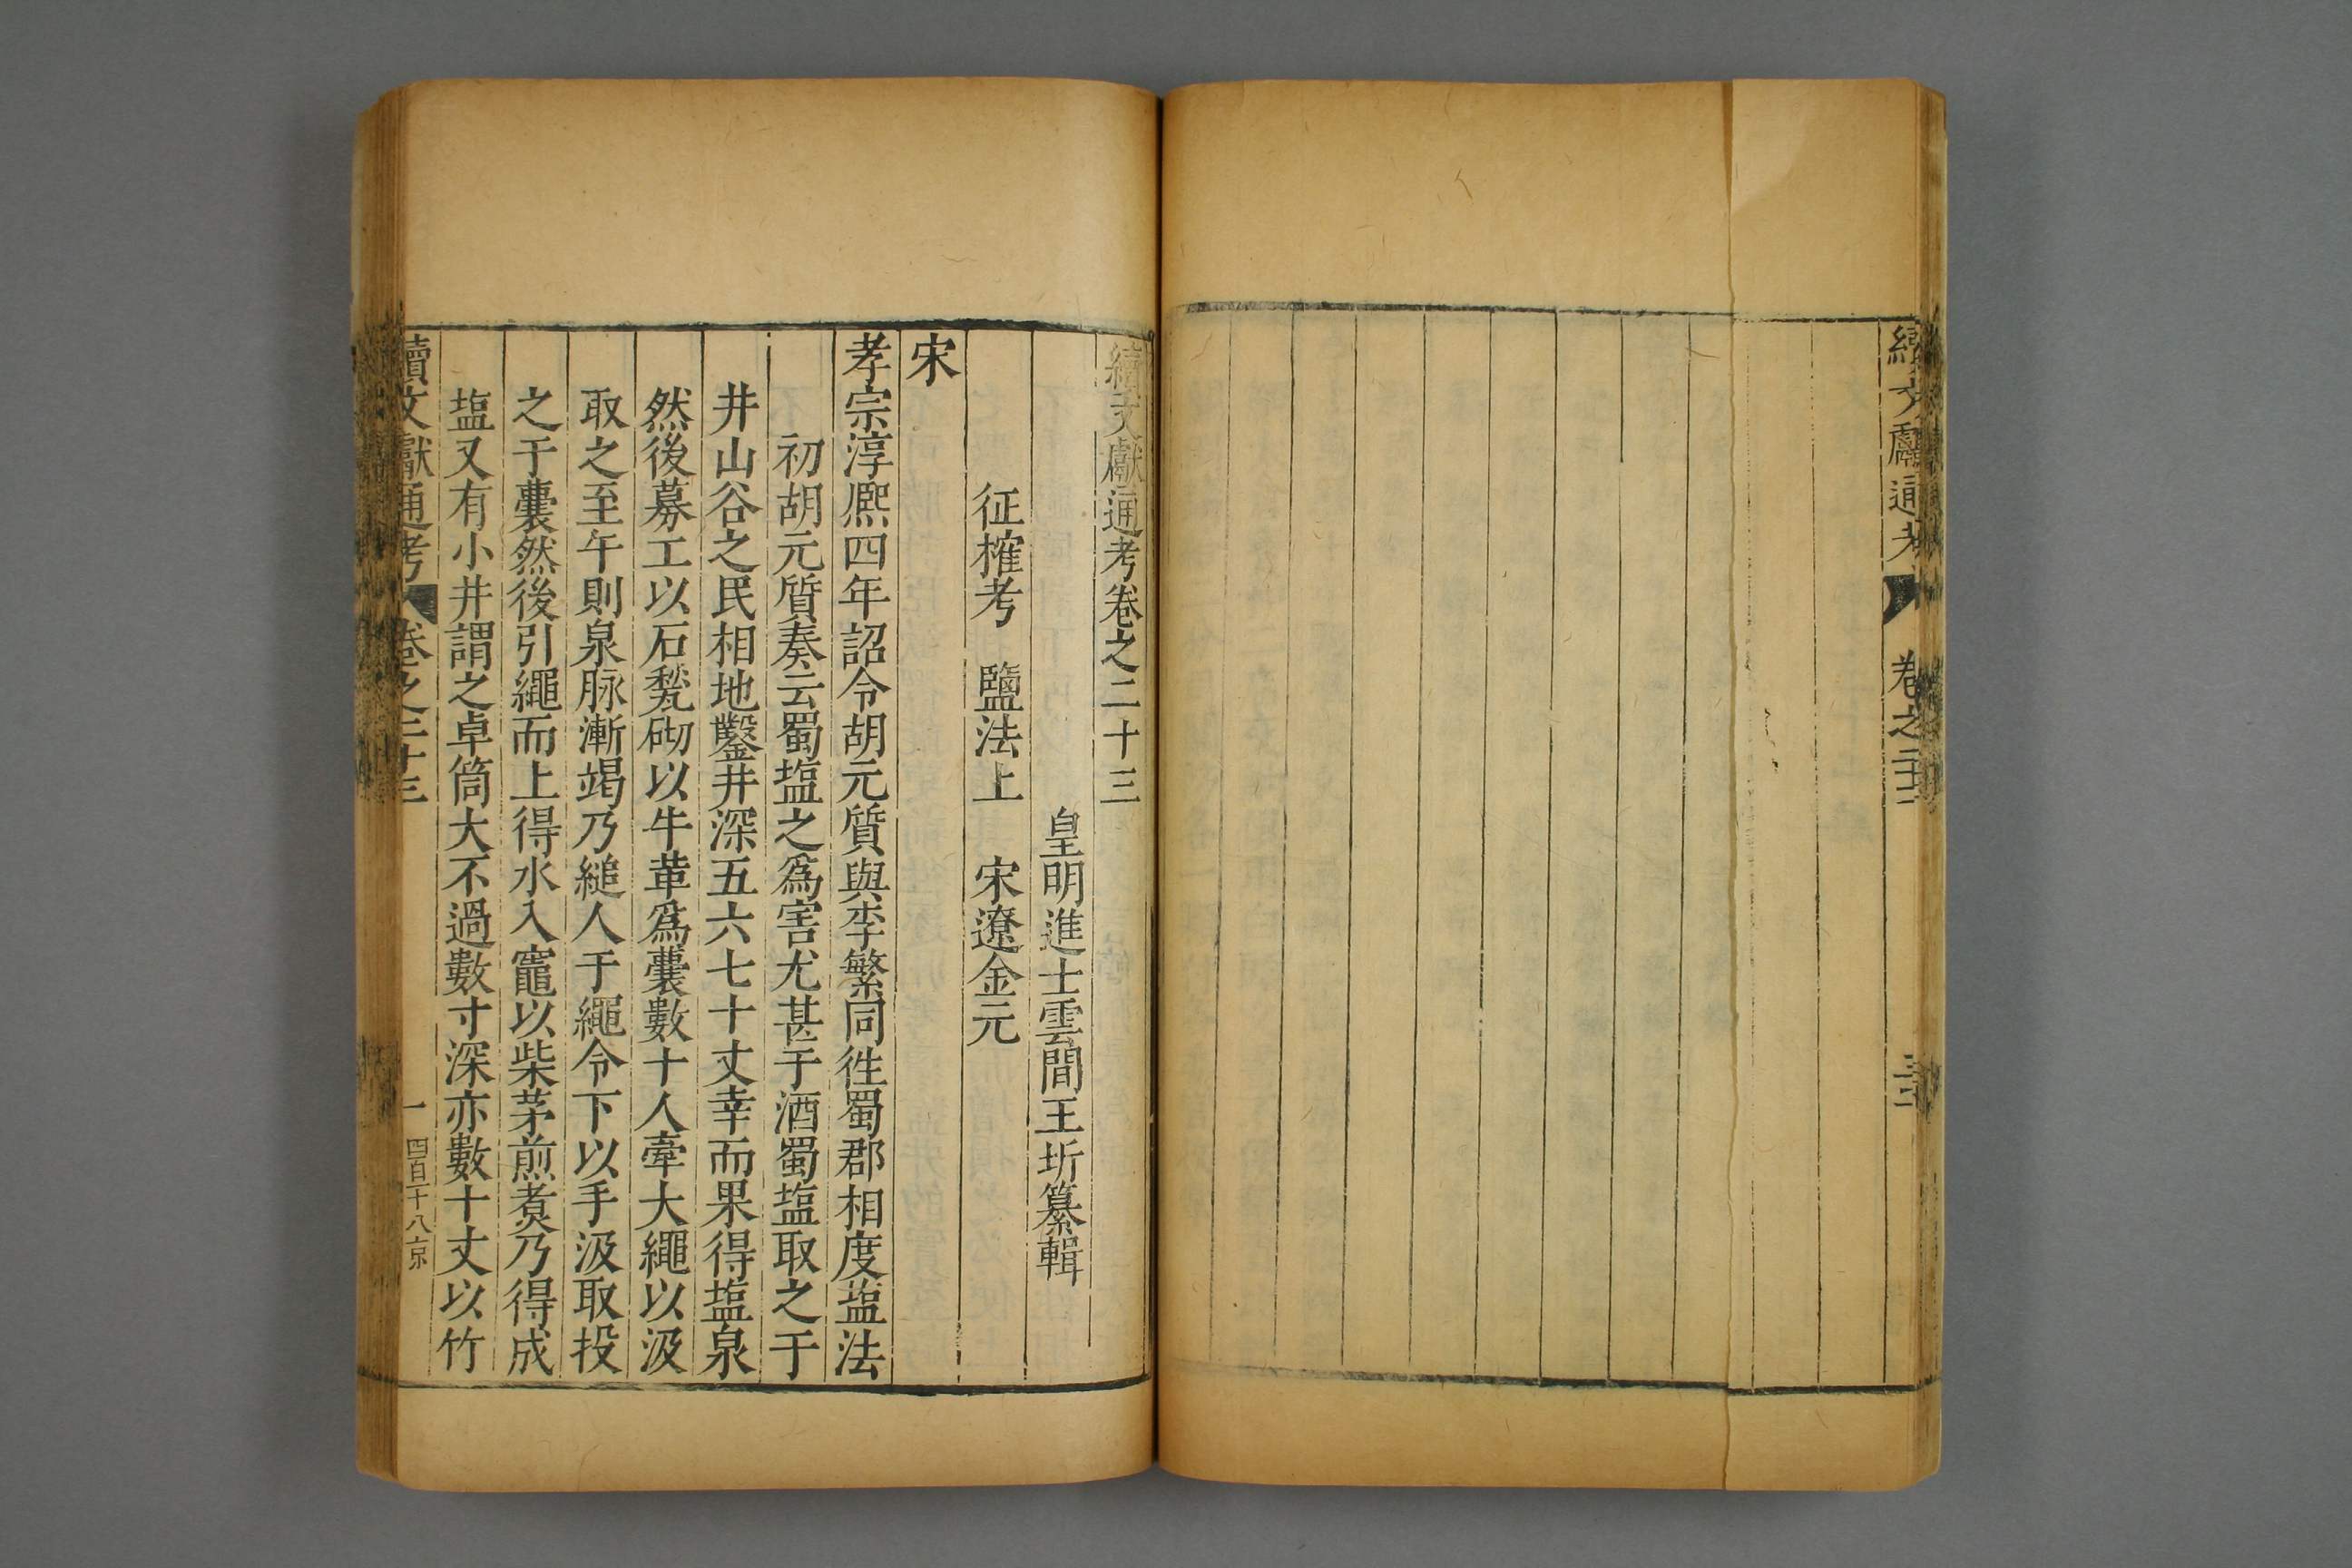 續文獻通考 卷之二十二
續文獻通考卷之二十三
皇明進士雲間王圻纂輯
征榷考 鹽法上 宋遼金元
宋
孝宗淳熈四年詔令胡元質與李蘩同徃蜀郡相度塩法
初胡元質奏云蜀塩之爲害尤甚于酒蜀塩取之于
井山谷之民相地鑿井深五六七十丈幸而果得塩泉
然後募工以石甃砌以牛革爲囊數十人牽大繩以汲
取之至午則泉脉漸竭乃縋人于繩令下以手汲取投
之于囊然後引繩而上得水入竈以柴茅煎煮乃得成
塩又有小井謂之卓筒大不過數寸深亦數十丈以竹
續文獻通考 卷之二十三 一 四百十八 京